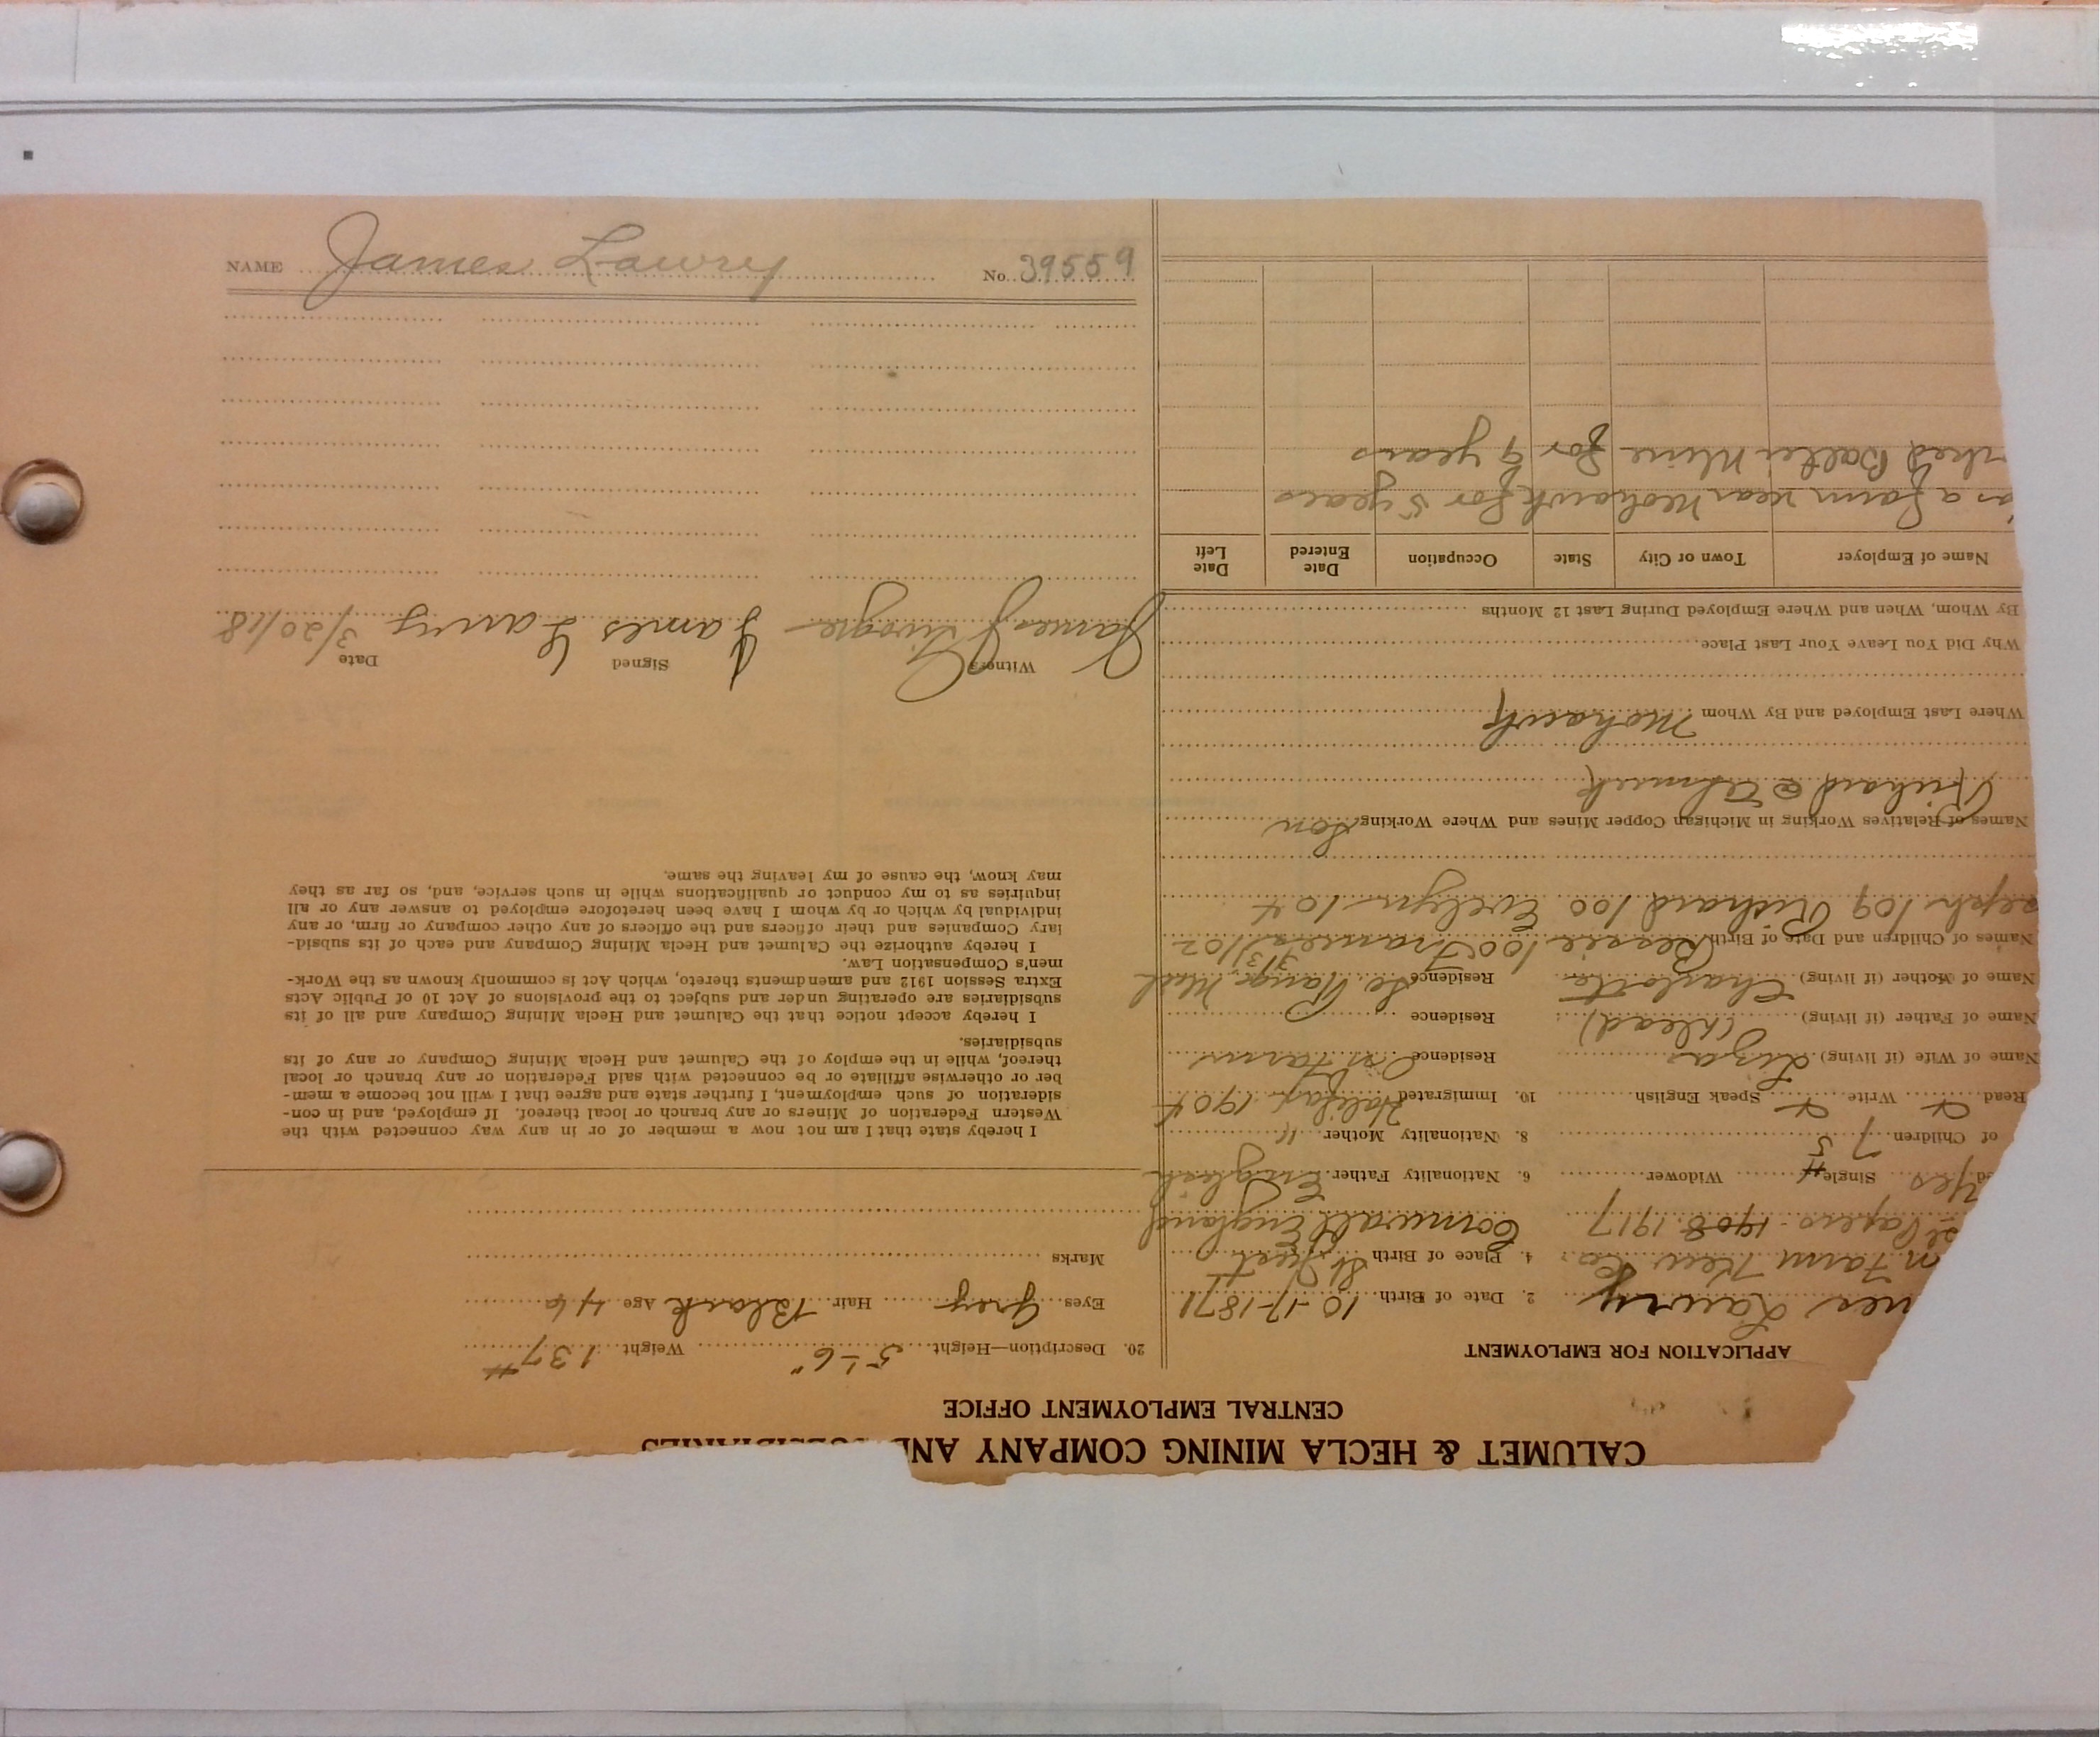 NAME James Lawry No. 39559
CALUMET & HECLA MINING COMPANY AND SUBSIDIARIES
CENTRAL EMPLOYMENT OFFICE
APPLICATION FOR EMPLOYMENT
mes Lawry 2. Date of Birth 10-17-1871
n Farm Kew Co. 4. Place of Birth St Just
Papers 1908 1917 Cornwall England
ed Yes Single Widower 6. Nationality Father English
of Children 7 5 8. Nationality Mother "
Read Write Speak English 10. Immigrated Halifax 1904
Name of Wife (if living) Liza Residence On Farm
Name of Father (if living) (Dead) Residence
Name of Mother (if living) Charlotte Residence So. Range Mich
Names of Children and Date of Birth Bessie 100 Frances 3/31/02
seph 109 Richard 100 Evelyn 104
Names of Relatives Working in Michigan Copper Mines and Where Working Son
Richard @ Ahmeek
Where Last Employed and By Whom Mohawk
Why Did You Leave Your Last Place
By Whom, When and Where Employed During Last 12 Months
Name of Employer Town or City State Occupation Date Entered Date Left
as a farm near Mohawk for 5 years
rked Baltic Mine for 9 years
20. Description—Height 5'-6" Weight 137 #
Eyes Grey Hair Black Age 46
Marks
I hereby state that I am not now a member of or in any way connected with the
Western Federation of Miners or any branch or local thereof. If employed, and in con-
sideration of such employment, I further state and agree that I will not become a mem-
ber or otherwise affiliate or be connected with said Federation or any branch or local
thereof, while in the employ of the Calumet and Hecla Mining Company or any of its
subsidiaries.
I hereby accept notice that the Calumet and Hecla Mining Company and all of its
subsidiaries are operating under and subject to the provisions of Act 10 of Public Acts
Extra Session 1912 and amendments thereto, which Act is commonly known as the Work-
men's Compensation Law.
I hereby authorize the Calumet and Hecla Mining Company and each of its subsid-
iary Companies and their officers and the officers of any other company or firm, or any
individual by which or by whom I have been heretofore employed to answer any or all
inquiries as to my conduct or qualifications while in such service, and, so far as they
may know, the cause of my leaving the same.
Witness Signed Date
James James Lawry 3/20/18